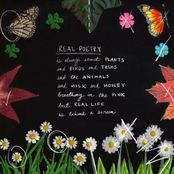 REAL POETRY
is always about PLANTS
and BIRDS and TREES
and the ANIMALS
and MILK and HONEY
breathing in the PINK
but REAL LIFE
is behind a screen